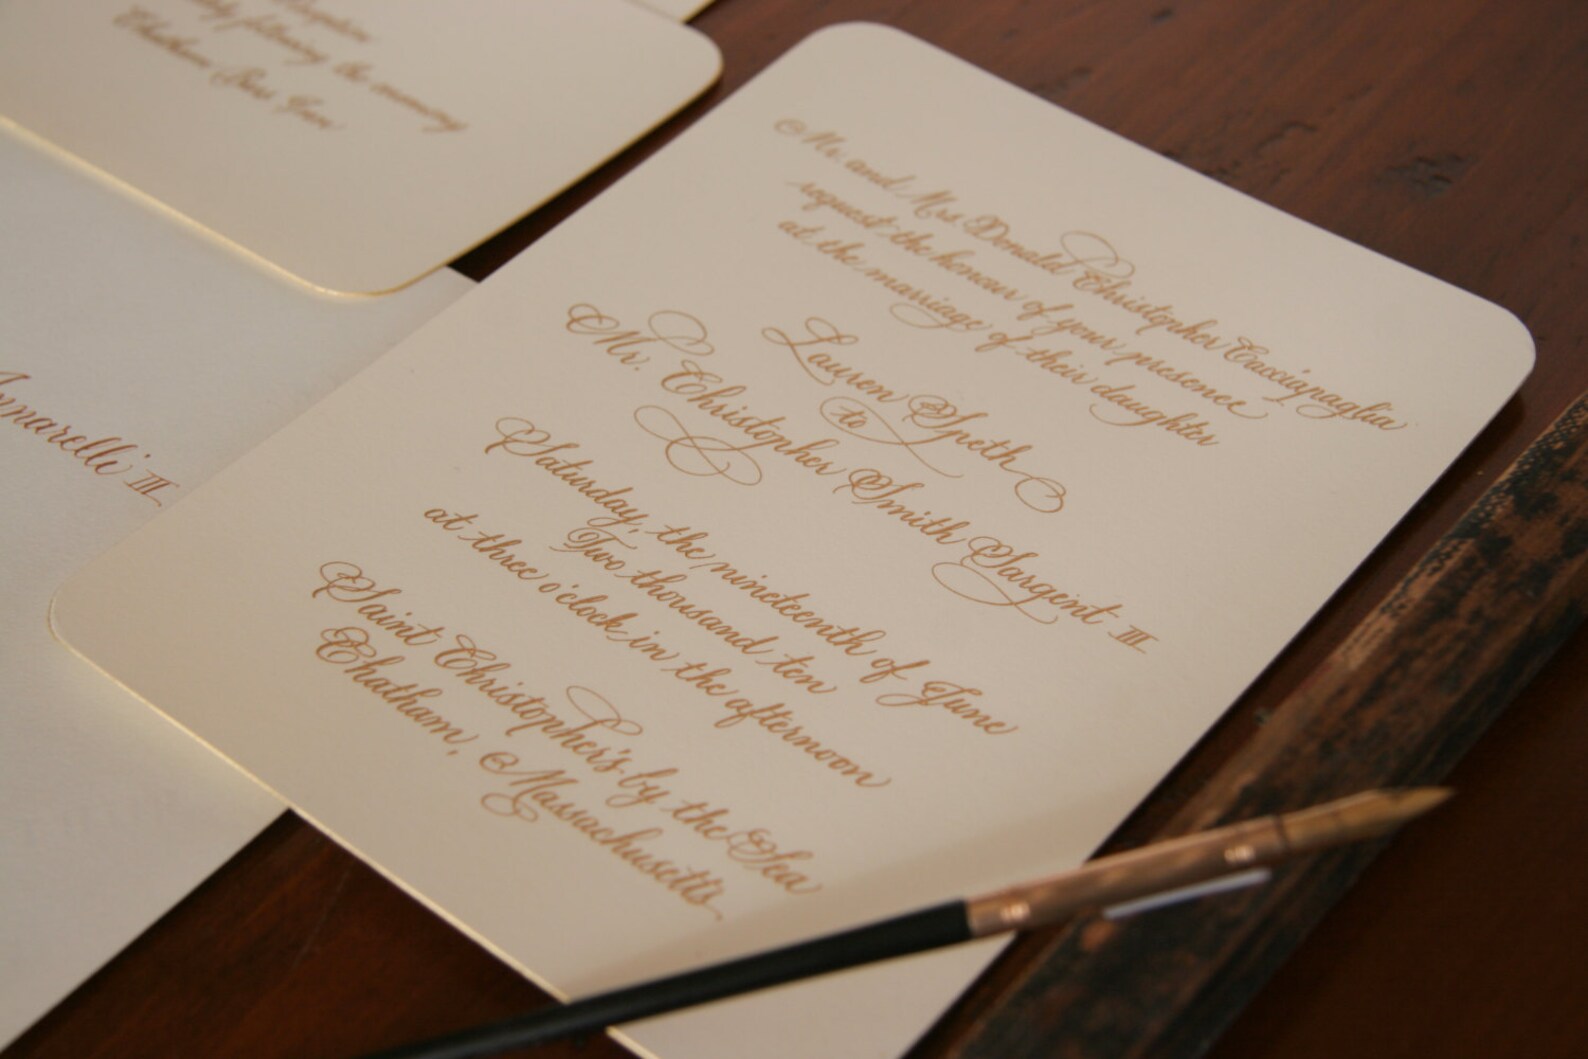 following the ceremony
Chatham Bars Inn
Annarelli III
Mr. and Mrs Donald Christopher Cacciapaglia
request the honour of your presence
at the marriage of their daughter
Lauren Speth
to
Mr. Christopher Smith Sargent III
Saturday, the nineteenth of June
Two thousand ten
at three o'clock in the afternoon
Saint Christopher's by the Sea
Chatham, Massachusetts